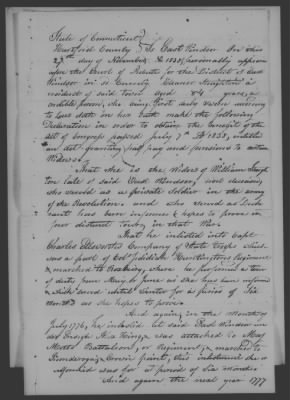 State of Connecticut
Hartford County } ss East Windsor On this
27th day of November AD 1838, personally appeared
upon the Court of Probate for the District of East
Windsor in said County Eleanor
resident of said town aged 84 years, a
credible person, she being first duly sworn according
to law doth on her Oath make the following
Declaration in order to obtain the benefit of the
act of Congress passed July 7th AD 1838, entitled
an act granting half pay and pensions to certain
Widows.
That she is the Widow of William
late of said East Windsor, now deceased,
who served as a private Soldier in the army
of the Revolution, and who served as Declarant
has been informed & hopes to prove in
four distinct in that War.
That he enlisted into Capt
Charles Ellsworths Company of State Troops which
was a part of Col Jedidiah Huntingtons Regiment
& marched to Roxbury, where he performed a tour
of duty from May, to June as she has been informed
which served under Center for a period of Six
months as she hopes to prove.
And again, in the month of
July 1776, he enlisted at said East Windsor under
Ensign was attached to Majr
Motts Battalion, or Regiment, & marched to
Ticonderoga & Crown point, this enlistment she is
informed was for a period of Six months
And again the next year 1777